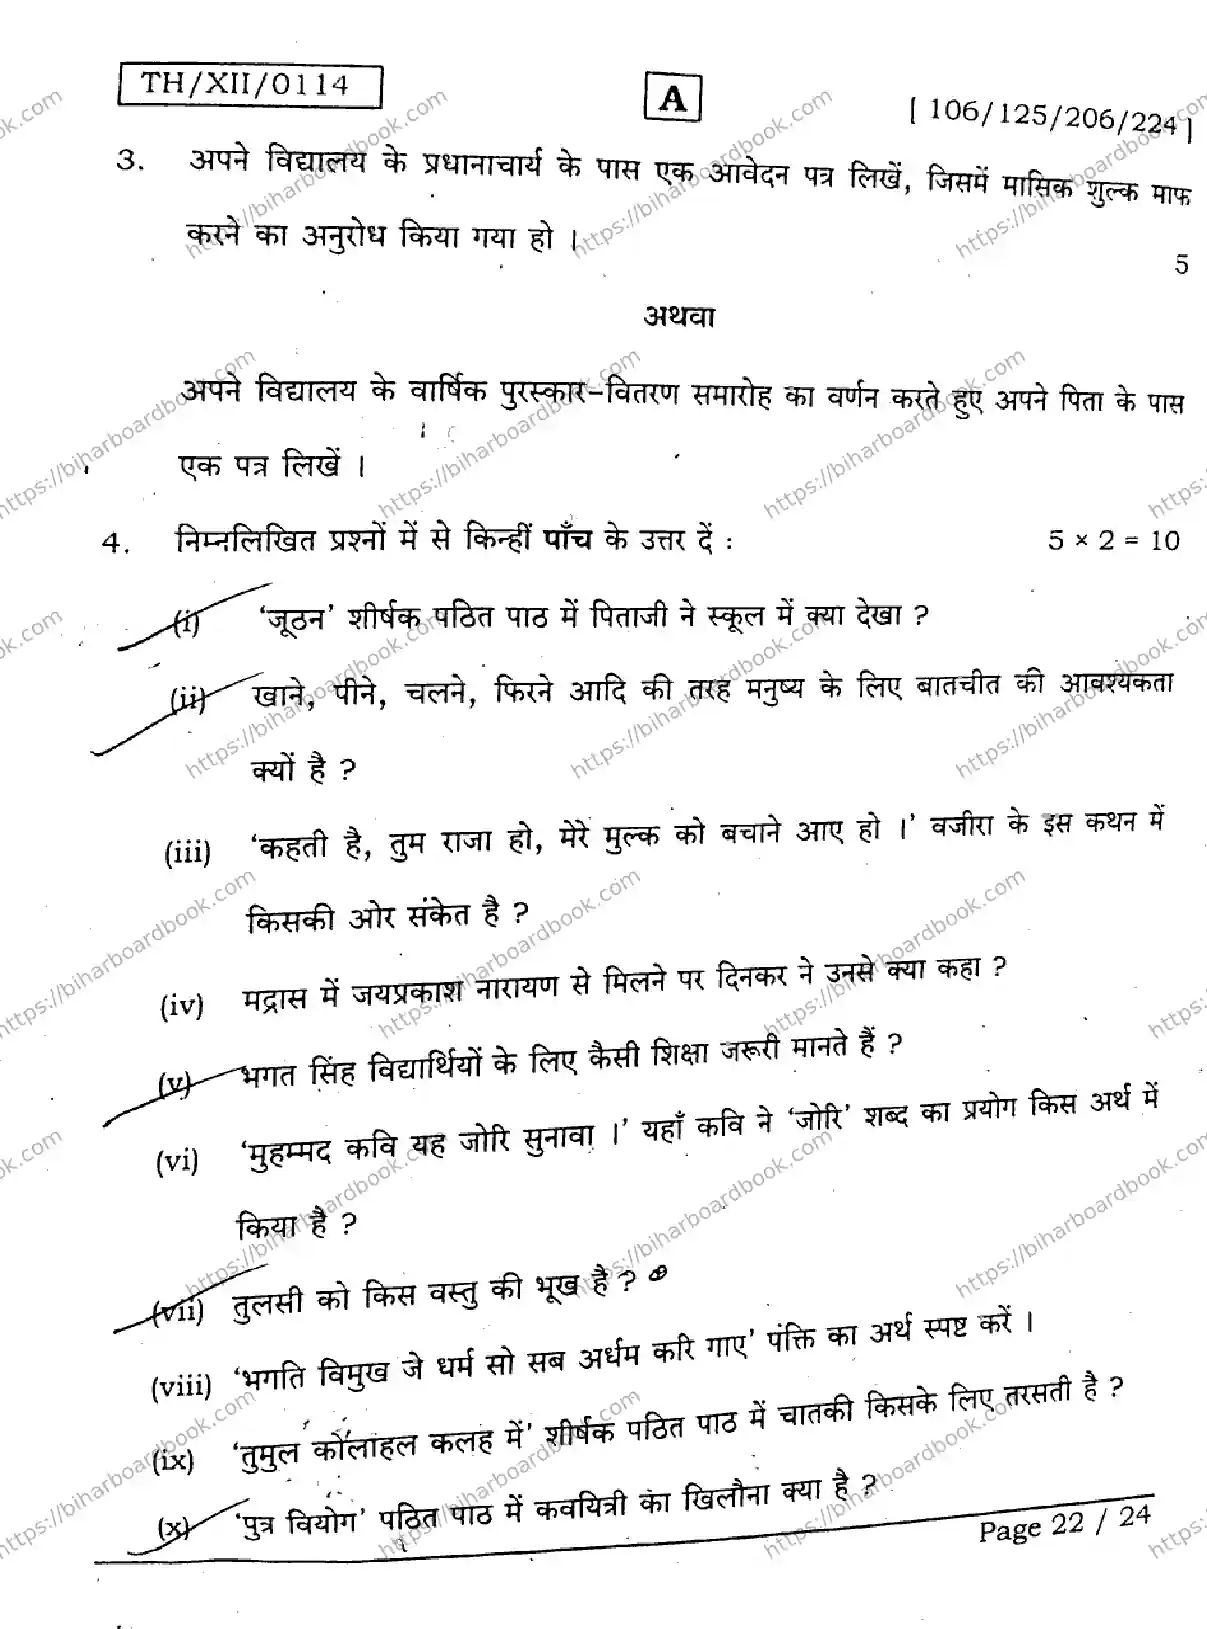 TH/XII/0114
A
[ 106/125/206/224 ]
3. अपने विद्यालय के प्रधानाचार्य के पास एक आवेदन पत्र लिखें, जिसमें मासिक शुल्क माफ
करने का अनुरोध किया गया हो ।
5
अथवा
अपने विद्यालय के वार्षिक पुरस्कार-वितरण समारोह का वर्णन करते हुए अपने पिता के पास
एक पत्र लिखें ।
4. निम्नलिखित प्रश्नों में से किन्हीं पाँच के उत्तर दें : 5 × 2 = 10
(i) 'जूठन' शीर्षक पठित पाठ में पिताजी ने स्कूल में क्या देखा ?
(ii) खाने, पीने, चलने, फिरने आदि की तरह मनुष्य के लिए बातचीत की आवश्यकता
क्यों है ?
(iii) 'कहती है, तुम राजा हो, मेरे मुल्क को बचाने आए हो ।' वजीरा के इस कथन में
किसकी ओर संकेत है ?
(iv) मद्रास में जयप्रकाश नारायण से मिलने पर दिनकर ने उनसे क्या कहा ?
(v) भगत सिंह विद्यार्थियों के लिए कैसी शिक्षा जरूरी मानते हैं ?
(vi) 'मुहम्मद कवि यह जोरि सुनावा ।' यहाँ कवि ने 'जोरि' शब्द का प्रयोग किस अर्थ में
किया है ?
(vii) तुलसी को किस वस्तु की भूख है ?
(viii) 'भगति विमुख जे धर्म सो सब अर्धम करि गाए' पंक्ति का अर्थ स्पष्ट करें ।
(ix) 'तुमुल कोलाहल कलह में' शीर्षक पठित पाठ में चातकी किसके लिए तरसती है ?
(x) 'पुत्र वियोग' पठित पाठ में कवयित्री का खिलौना क्या है ?
Page 22 / 24
https://biharboardbook.com